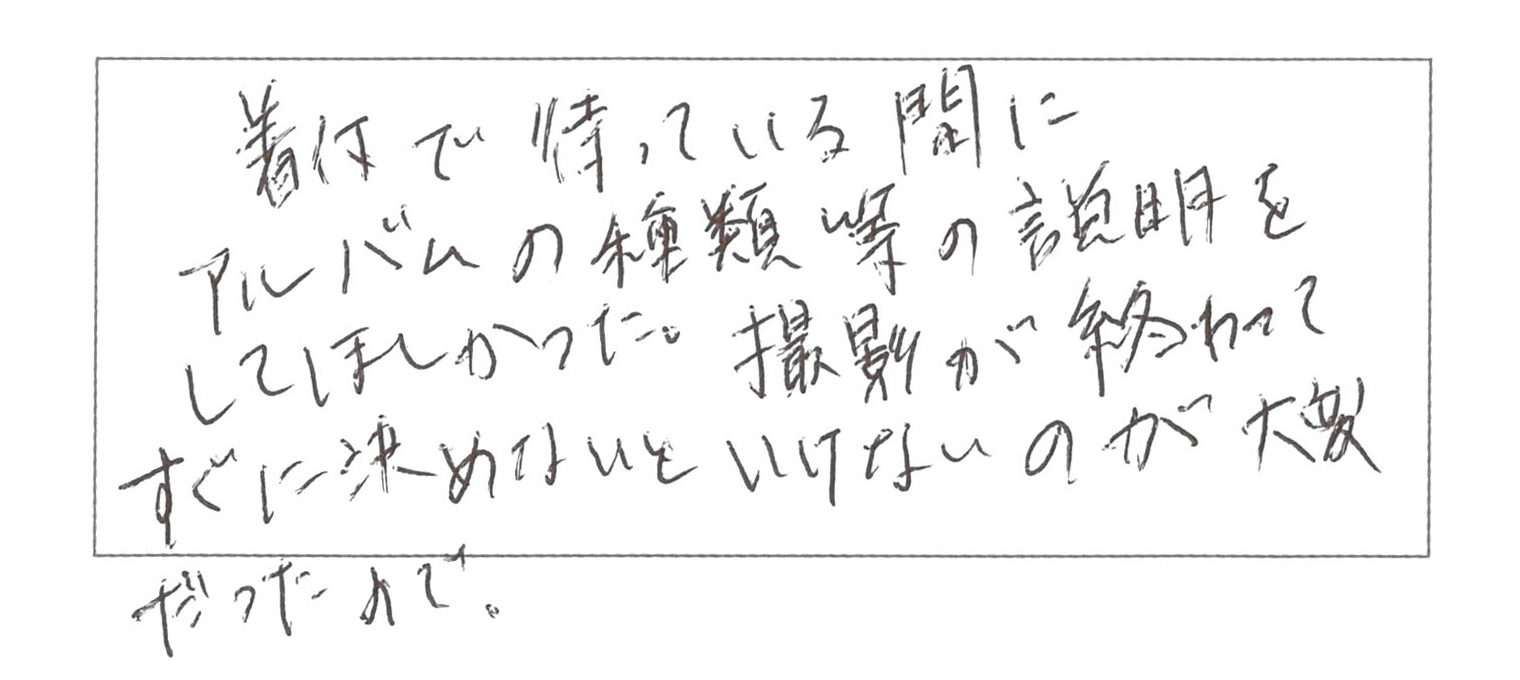 着付で待っている間に
アルバムの種類等の説明を
してほしかった。撮影が終わって
すぐに決めないといけないのが大変
だったので。